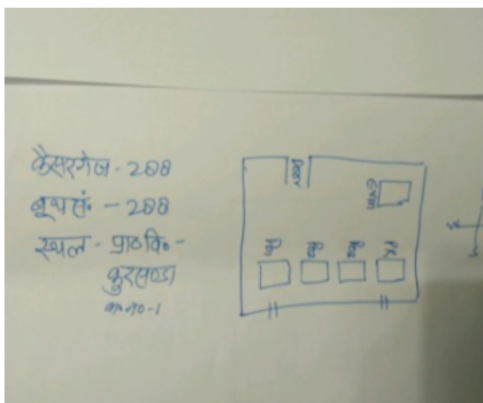 कैसरगंज - 288
बूथ सं. - 288
स्थल - प्रा० वि० -
कुरसण्डा
क०न०-1
Door
EVM
PO1
PO2
PO3
PR